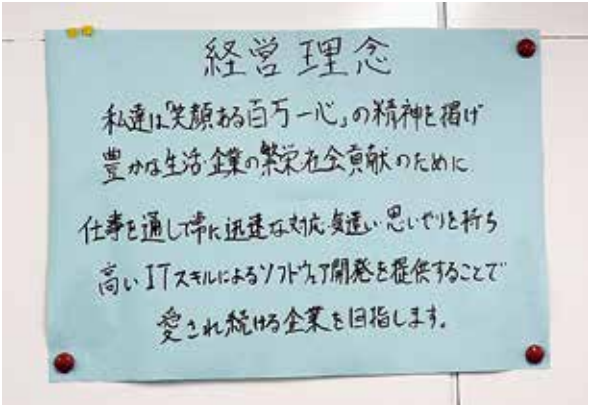 経営理念
私達は「笑顔ある百万一心」の精神を掲げ
豊かな生活・企業の繁栄・社会貢献のために
仕事を通して常に迅速な対応・気遣い・思いやりを持ち
高いITスキルによるソフトウェア開発を提供することで
愛され続ける企業を目指します。